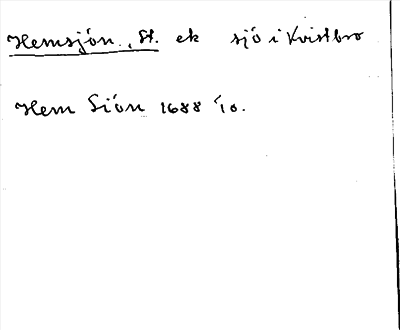 Hemsjön, St. ek sjö i Kvistbro
Hem Siön 1688 1/10.